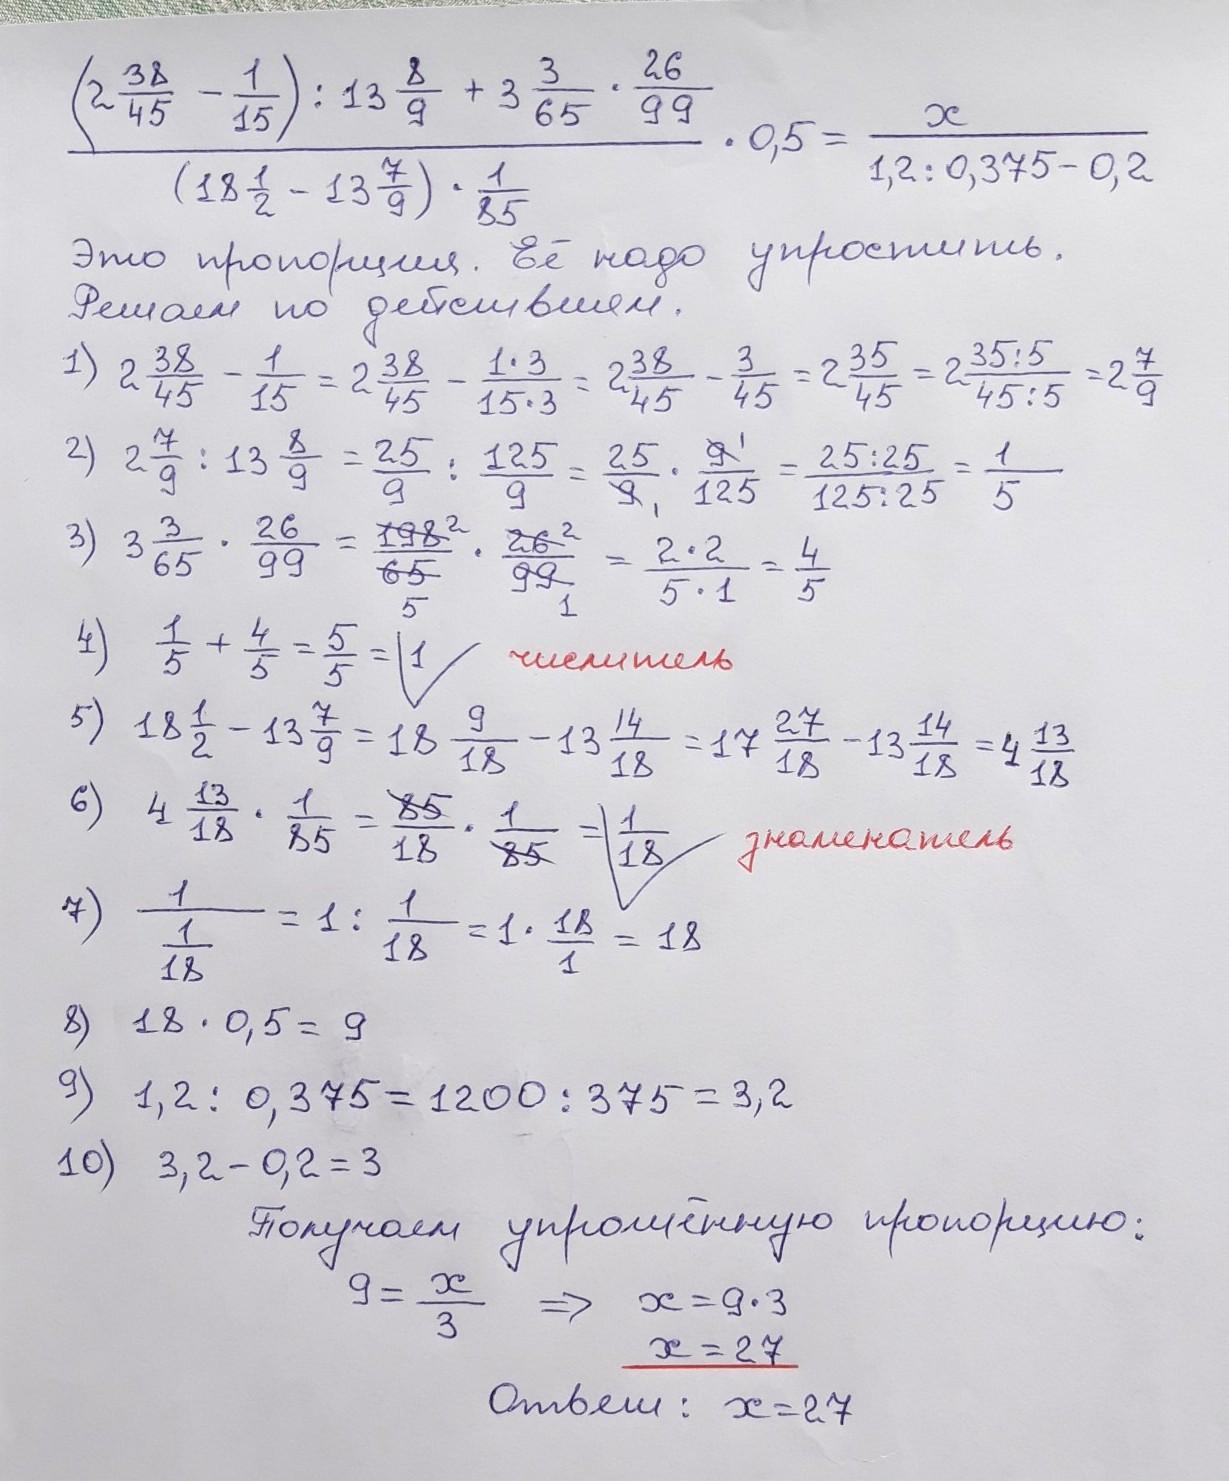 (2 38/45 - 1/15) : 13 8/9 + 3 3/65 · 26/99
/ (18 1/2 - 13 7/9) · 1/85 · 0,5 = x / (1,2 : 0,375 - 0,2)
Это пропорция. Её надо упростить.
Решаем по действиям.
1) 2 38/45 - 1/15 = 2 38/45 - 1·3/15·3 = 2 38/45 - 3/45 = 2 35/45 = 2 35:5/45:5 = 2 7/9
2) 2 7/9 : 13 8/9 = 25/9 : 125/9 = 25/9 1 · 9 1/125 = 25:25/125:25 = 1/5
3) 3 3/65 · 26/99 = 198 2/65 5 · 26 2/99 1 = 2·2/5·1 = 4/5
4) 1/5 + 4/5 = 5/5 = 1 числитель
5) 18 1/2 - 13 7/9 = 18 9/18 - 13 14/18 = 17 27/18 - 13 14/18 = 4 13/18
6) 4 13/18 · 1/85 = 85/18 · 1/85 = 1/18 знаменатель
7) 1/(1/18) = 1 : 1/18 = 1 · 18/1 = 18
8) 18 · 0,5 = 9
9) 1,2 : 0,375 = 1200 : 375 = 3,2
10) 3,2 - 0,2 = 3
Получаем упрощённую пропорцию:
9 = x/3 => x = 9·3
x = 27
Ответ: x = 27